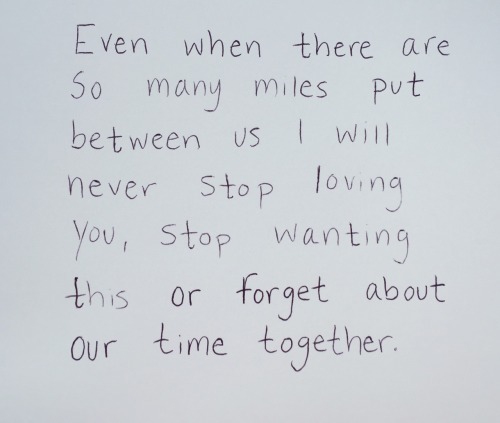 Even when there are
So many miles put
between us I will
never stop loving
you, stop wanting
this or forget about
our time together.